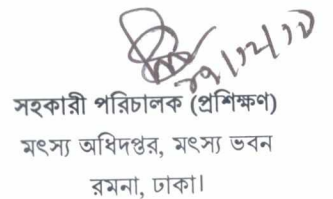 সহকারী পরিচালক (প্রশিক্ষণ)
মৎস্য অধিদপ্তর, মৎস্য ভবন
রমনা, ঢাকা।